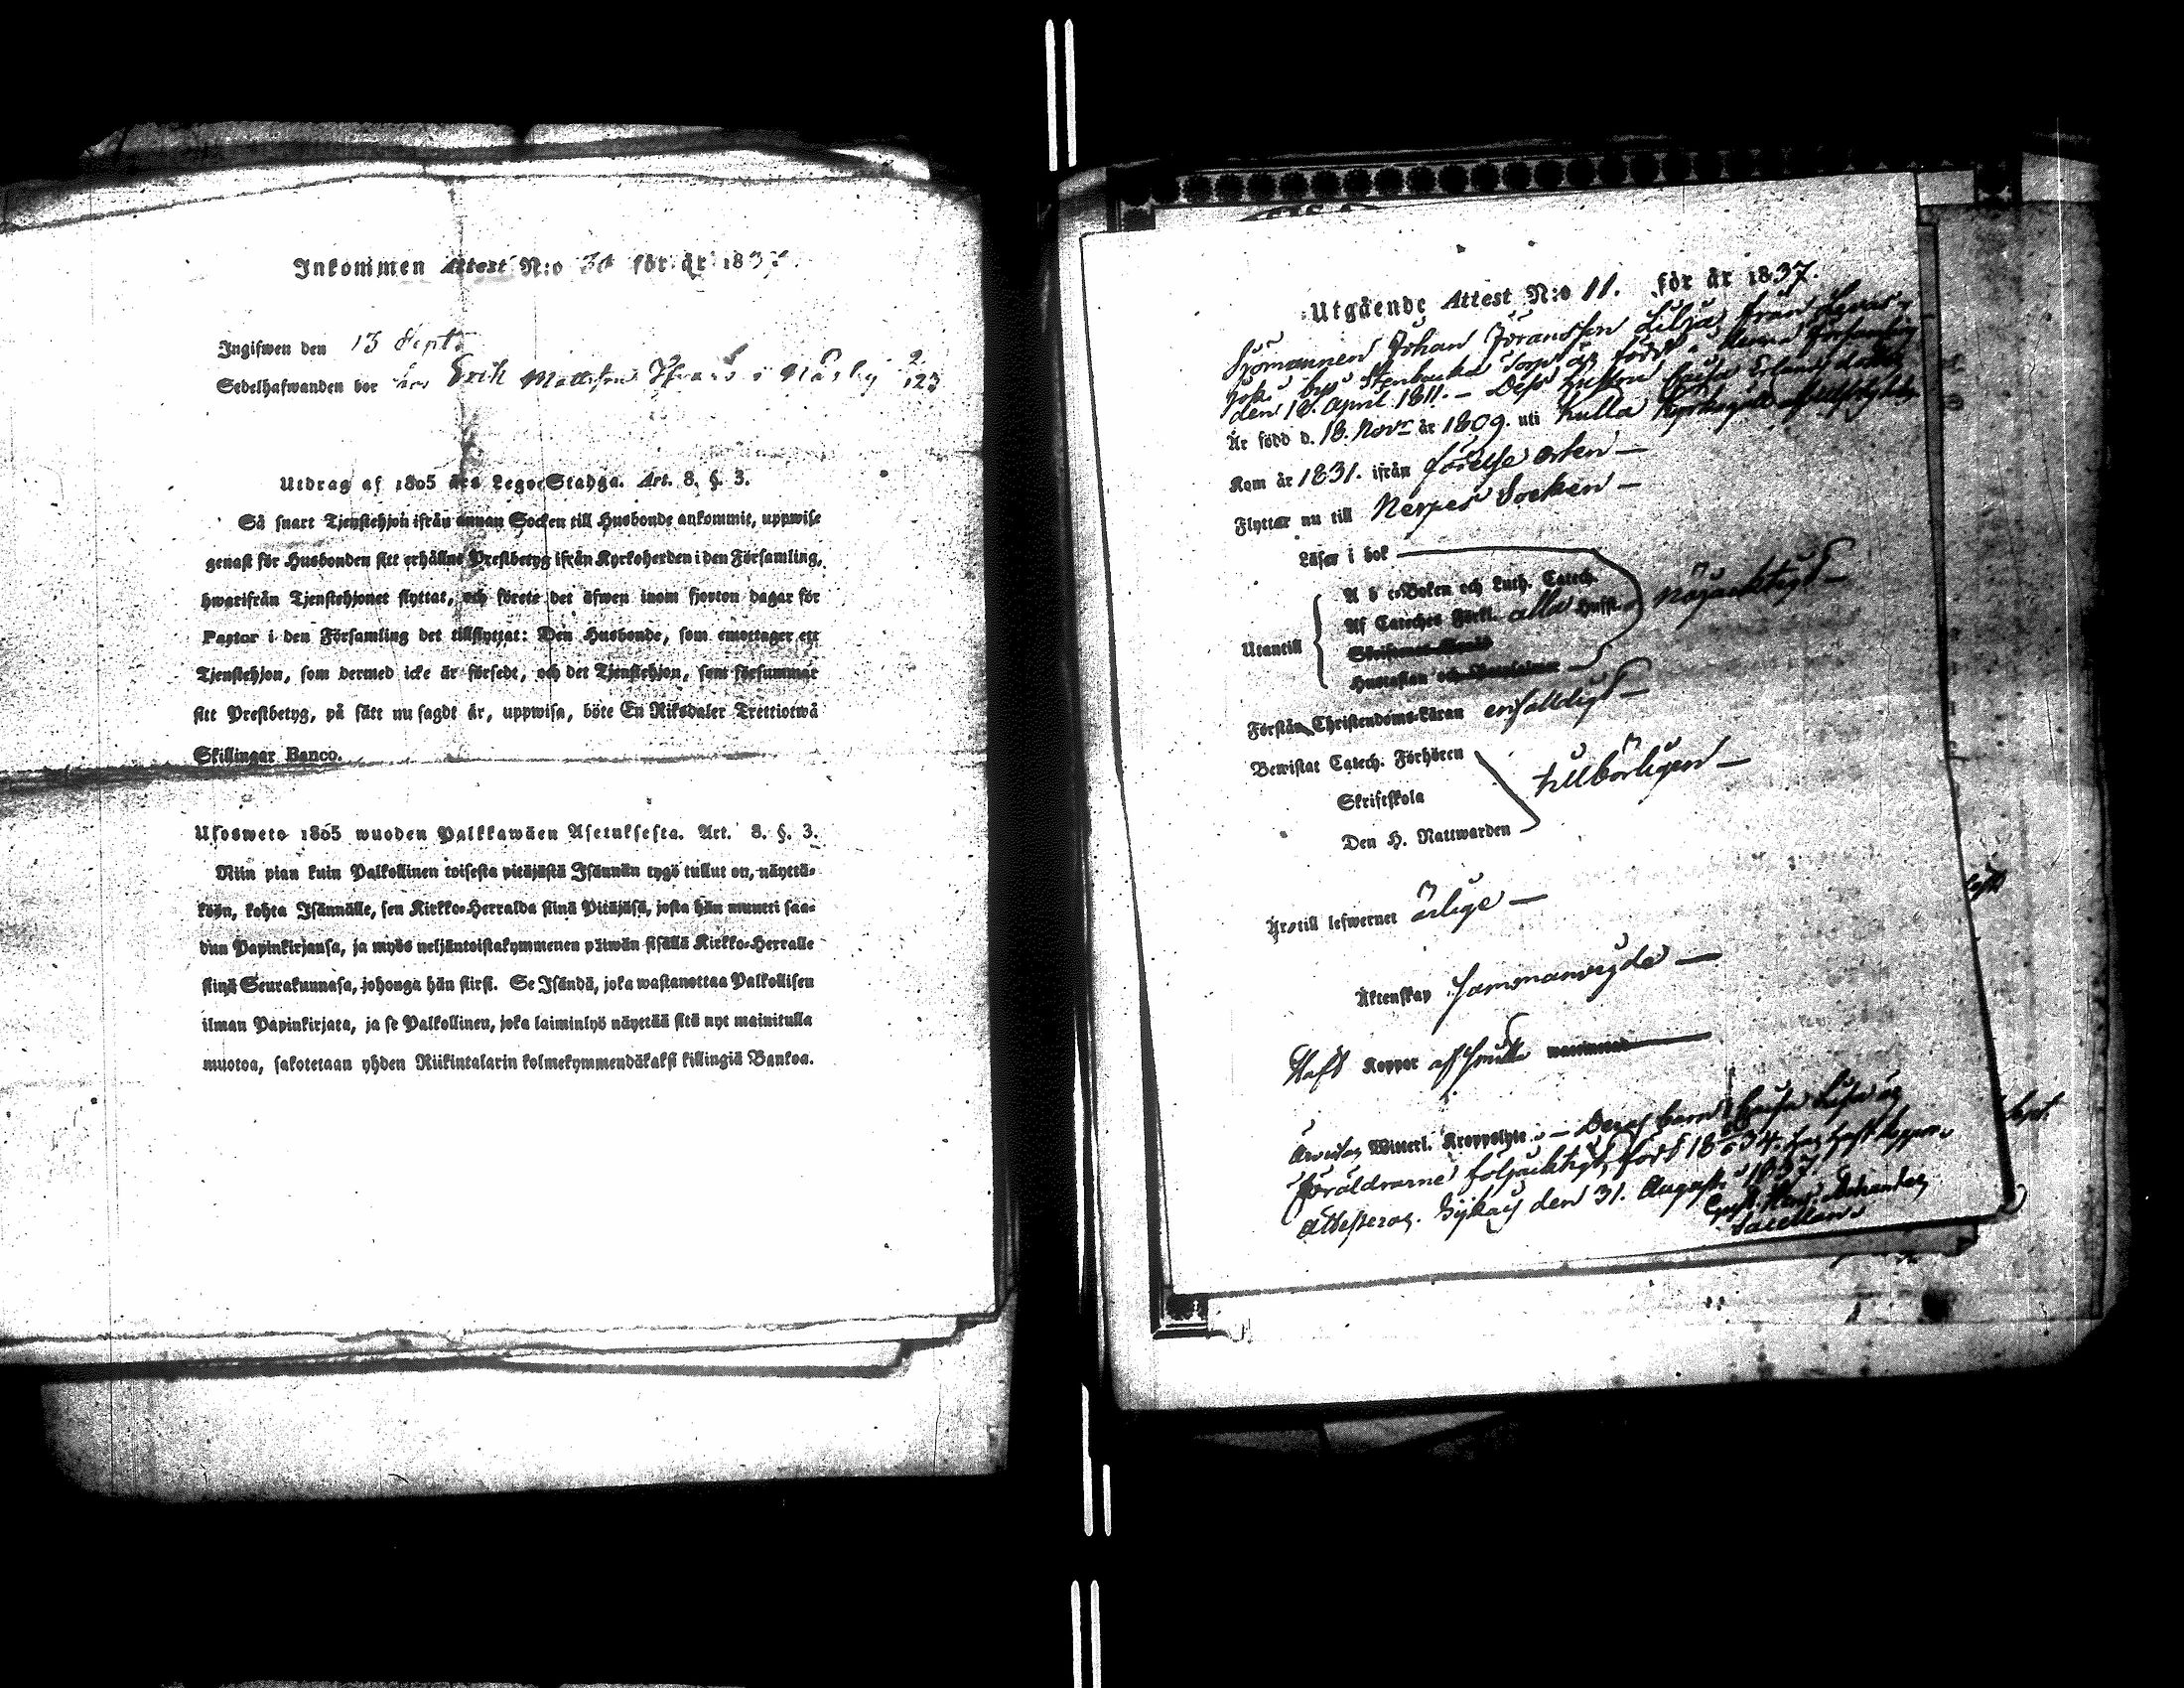 Inkommen Attest N:o 30 för år 1837.
Ingifwen den 13 Sept.
Sedelhafwanden bor hos Erik Mattsson i Nässby
Utdrag af 1805 års Lego-Stadga. Art. 8. §. 3.
Så snart Tjenstehjon ifrån annan Socken till Husbonde ankommit, uppwise
genast för Husbonden sitt erhållne Prestbetyg ifrån Kyrkoherden i den Församling,
hwarifrån Tjenstehjonet flyttat, och förete det äfwen inom fjorton dagar för
Pastor i den Församling det tillflyttat: Den Husbonde, som emottager ett
Tjenstehjon, som dermed icke är försedt, och det Tjenstehjon, som försummar
sitt Prestbetyg, på sätt nu sagdt är, uppwisa, böte En Riksdaler Trettiotwå
Skillingar Banco.
Ulosweto 1805 wuoden Palkkawäen Asetuksesta. Art. 8. §. 3.
Niin pian kuin Palkollinen toisesta pitäjästä Isännän tygö tullut on, näyttä-
köön, kohta Isännälle, sen Kirkko-Herralda siinä Pitäjäsä, josta hän muutti saa-
dun Papinkirjansa, ja myös neljäntoistakymmenen päiwän sisällä Kirkko-Herralle
siinä Seurakunnasa, johonga hän siirsi. Se Isändä, joka wastanottaa Palkollisen
ilman Papinkirjata, ja se Palkollinen, joka laiminlyö näyttää sitä nyt mainitulla
muotoa, sakotetaan yhden Riikintalarin kolmekymmendäkaksi killingiä Bankoa.
Utgående Attest N:o 11. för år 1837.
Sjömannen Johan Jöransson Lilja från
by Stenbacka torp är född i denna församling
den 18. April 1811. – Dess hustru Cajsa Erlandsdotter
Är född d. 18. Novr år 1809. uti
Kom år 1831. ifrån födelse orten –
Flyttar nu till Nerpes Socken –
Läser i bok
A b c-Boken och Luth. Catech.
Utantill Af Cateches Förkl. alla Hufst. nöjaktigt –
Skriftenes Språk
Hustaflan och
Förstån Christendoms-Läran enfaldigt –
Bewistat Catech. Förhören
Skriftskola tillbörligen –
Den H. Nattwarden
Äro till lefwernet ärlige –
Äktenskap Sammanvigde –
Haft Koppor af Smitta
Witterl. Kroppslyte – Deras barn Cajsa Lisa är
föräldrarne följaktigt, född 18 34. har haft koppor
Attesterar. Sykary den 31. Augusti 1837.
Sacellan.
Sept.